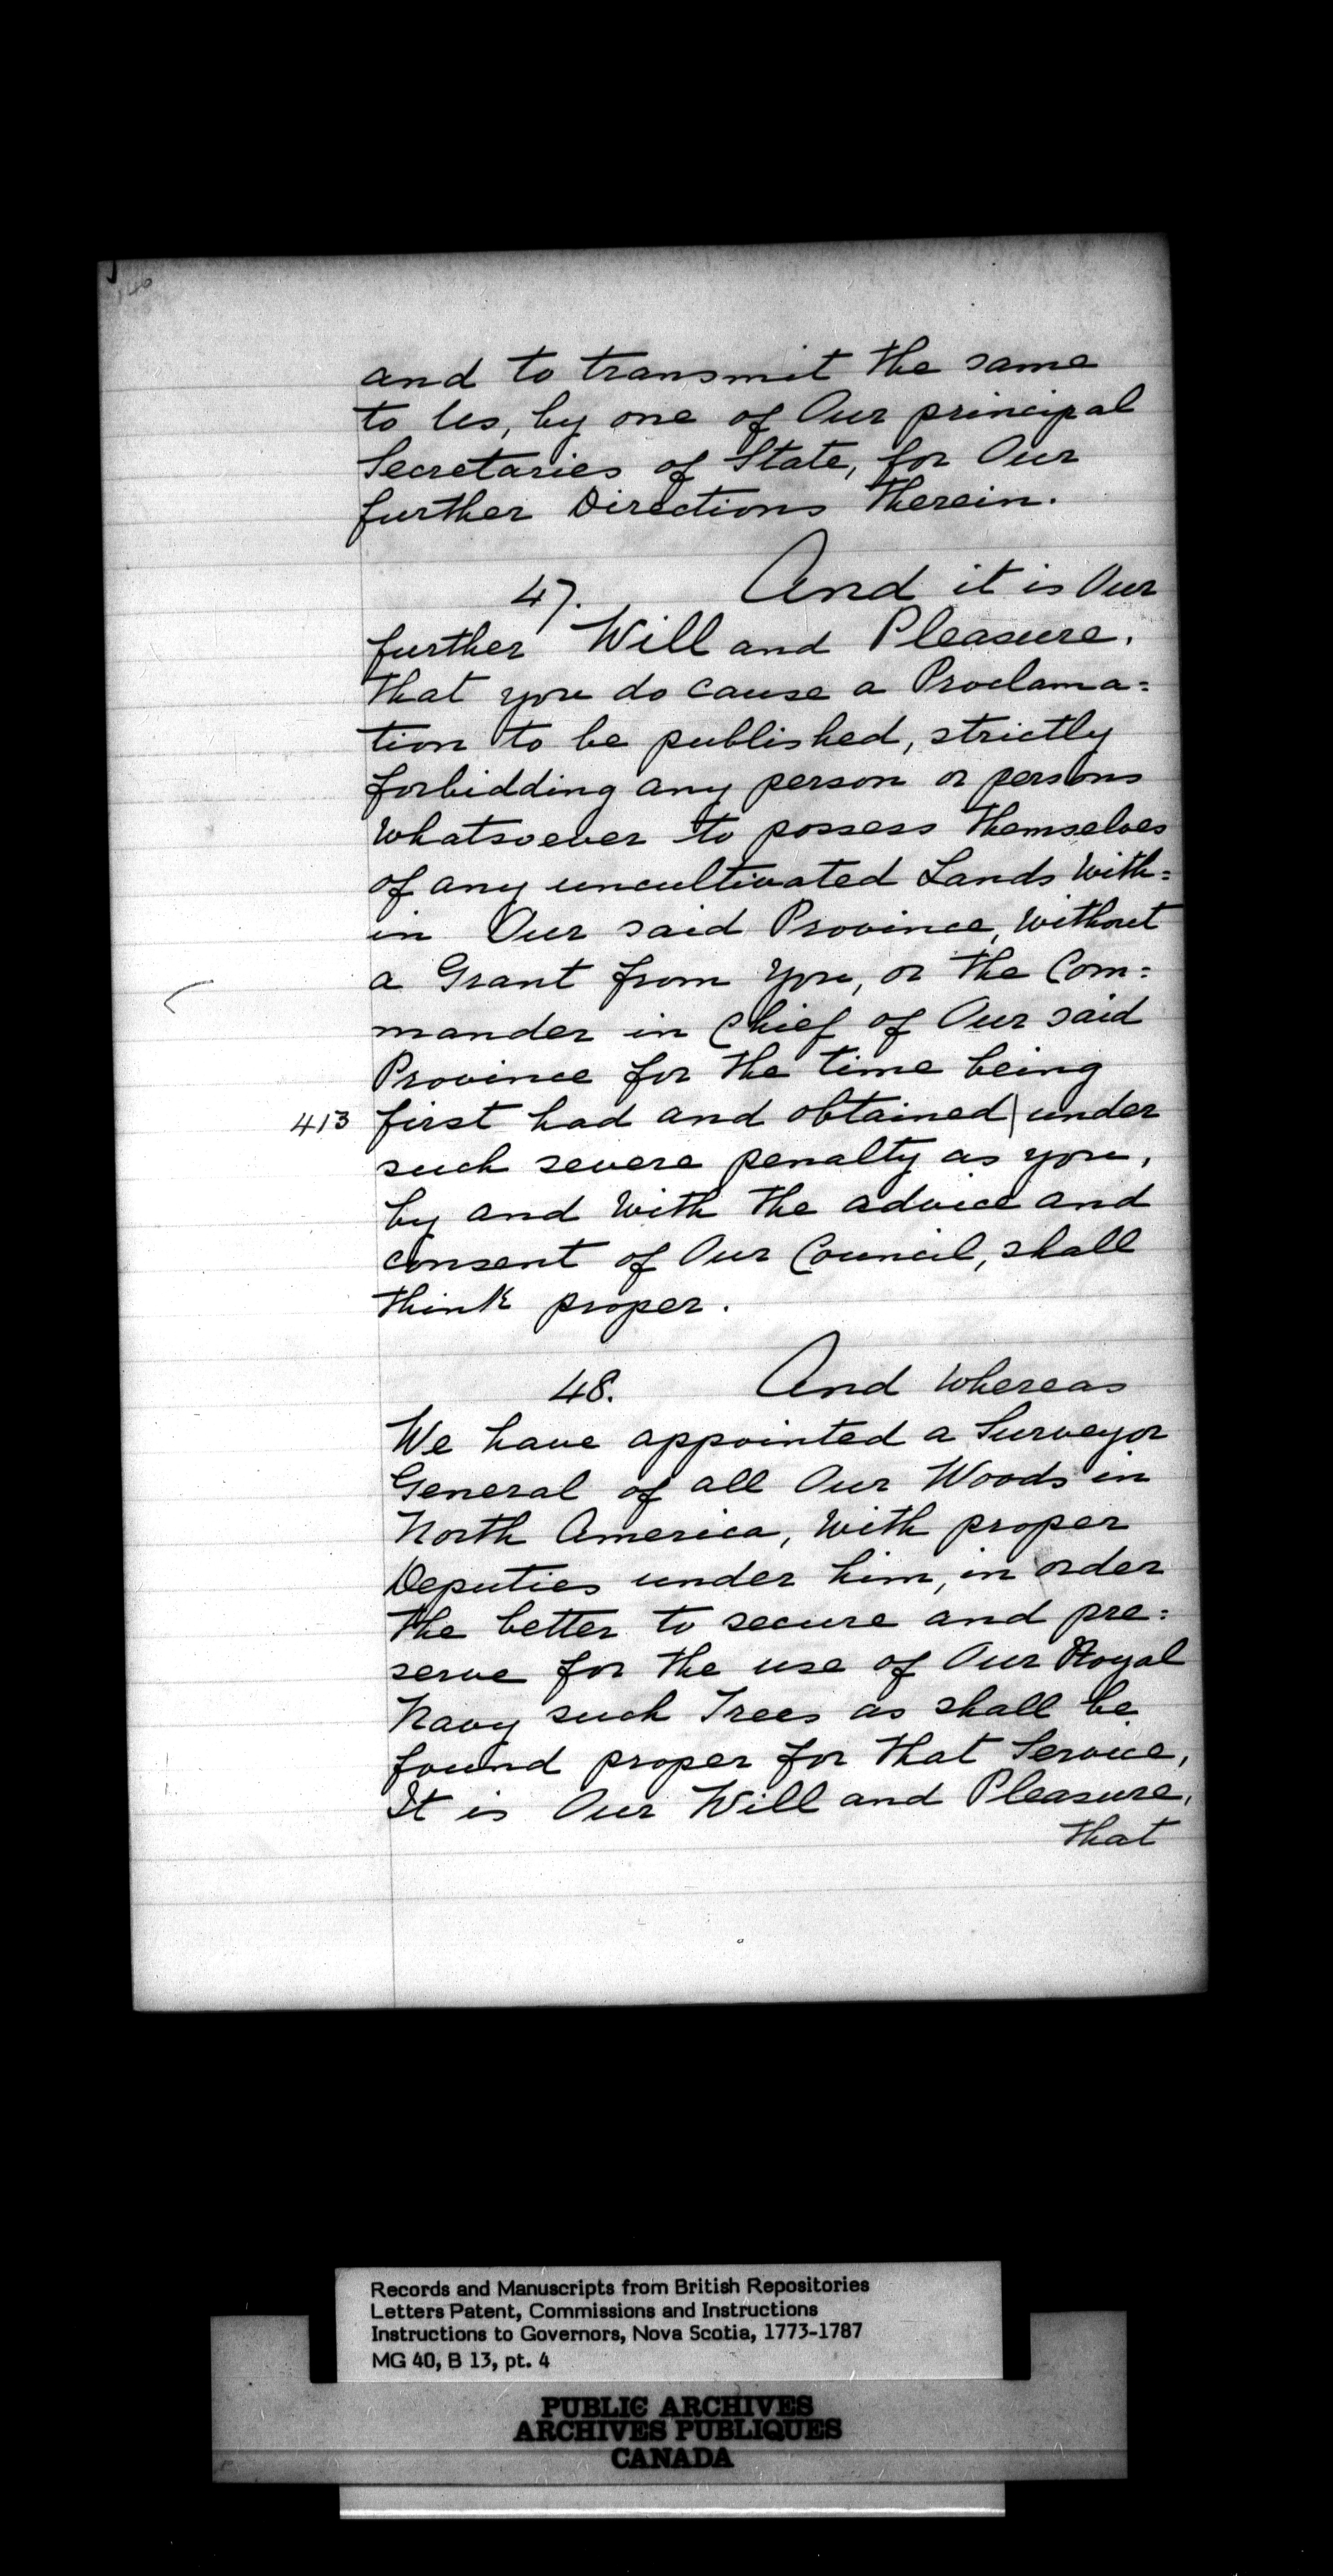 and to transmit the same
to Us, by one of Our principal
Secretaries of State, for Our
further Directions therein.
47. And it is Our
further Will and Pleasure,
that you do cause a Proclama=
tion to be published, strictly
forbidding any person or persons
whatsoever to possess themselves
of any uncultivated Lands with=
in Our said Province, without
a Grant from You, or the Com=
mander in Chief of Our said
Province for the time being
413 first had and obtained | under
such severe penalty as you,
by and with the advice and
consent of Our Council, shall
think proper.
48. And whereas
We have appointed a Surveyor
General of all Our Woods in
North America, with proper
Deputies under him, in order
the better to secure and pre=
serve for the use of Our Royal
Navy such Trees as shall be
found proper for that Service,
It is Our Will and Pleasure,
that
Records and Manuscripts from British Repositories
Letters Patent, Commissions and Instructions
Instructions to Governors, Nova Scotia, 1773-1787
MG 40, B 13, pt. 4
PUBLIC ARCHIVES
ARCHIVES PUBLIQUES
CANADA